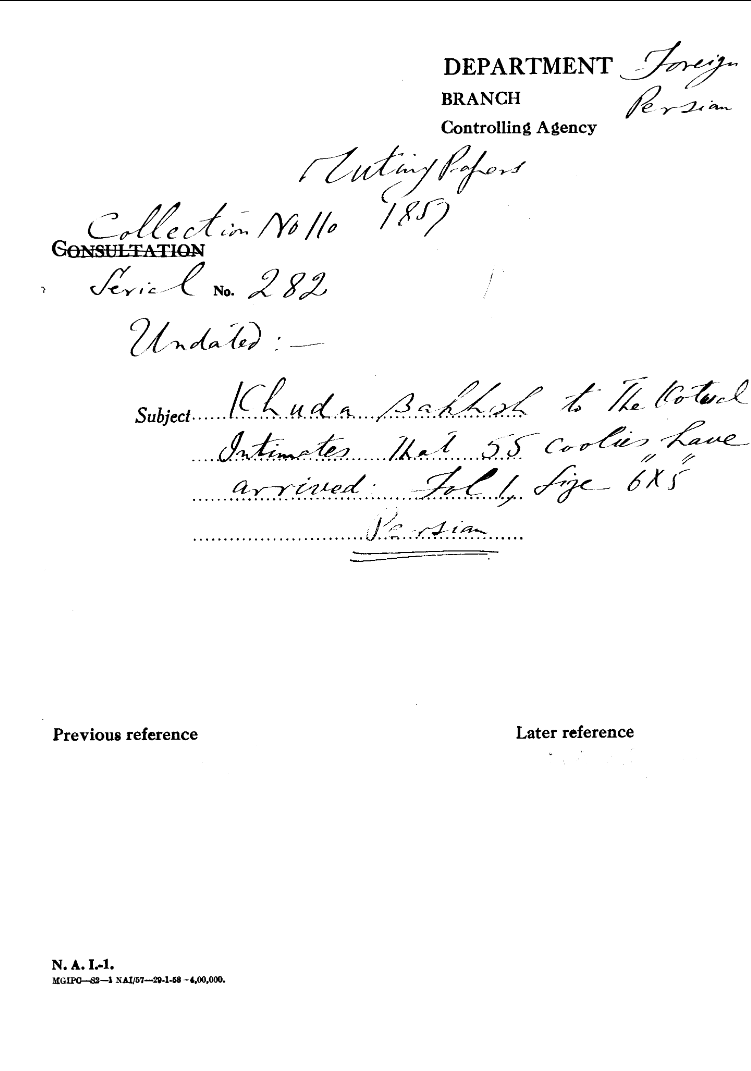 DEPARTMENT Foreign
BRANCH Persian
Controlling Agency
Mutiny Papers
Collection No 110 1857
CONSULTATION
Serial No. 282
Undated :—
Subject..... Khuda Bakhsh to The Kotwal
Intimates that 55 coolies have
arrived. Fol 1, Size 6"X5"
Persian
Previous reference Later reference
N. A. I.-1.
MGIPC—S3—1 NAI/57—29-1-58 -4,00,000.